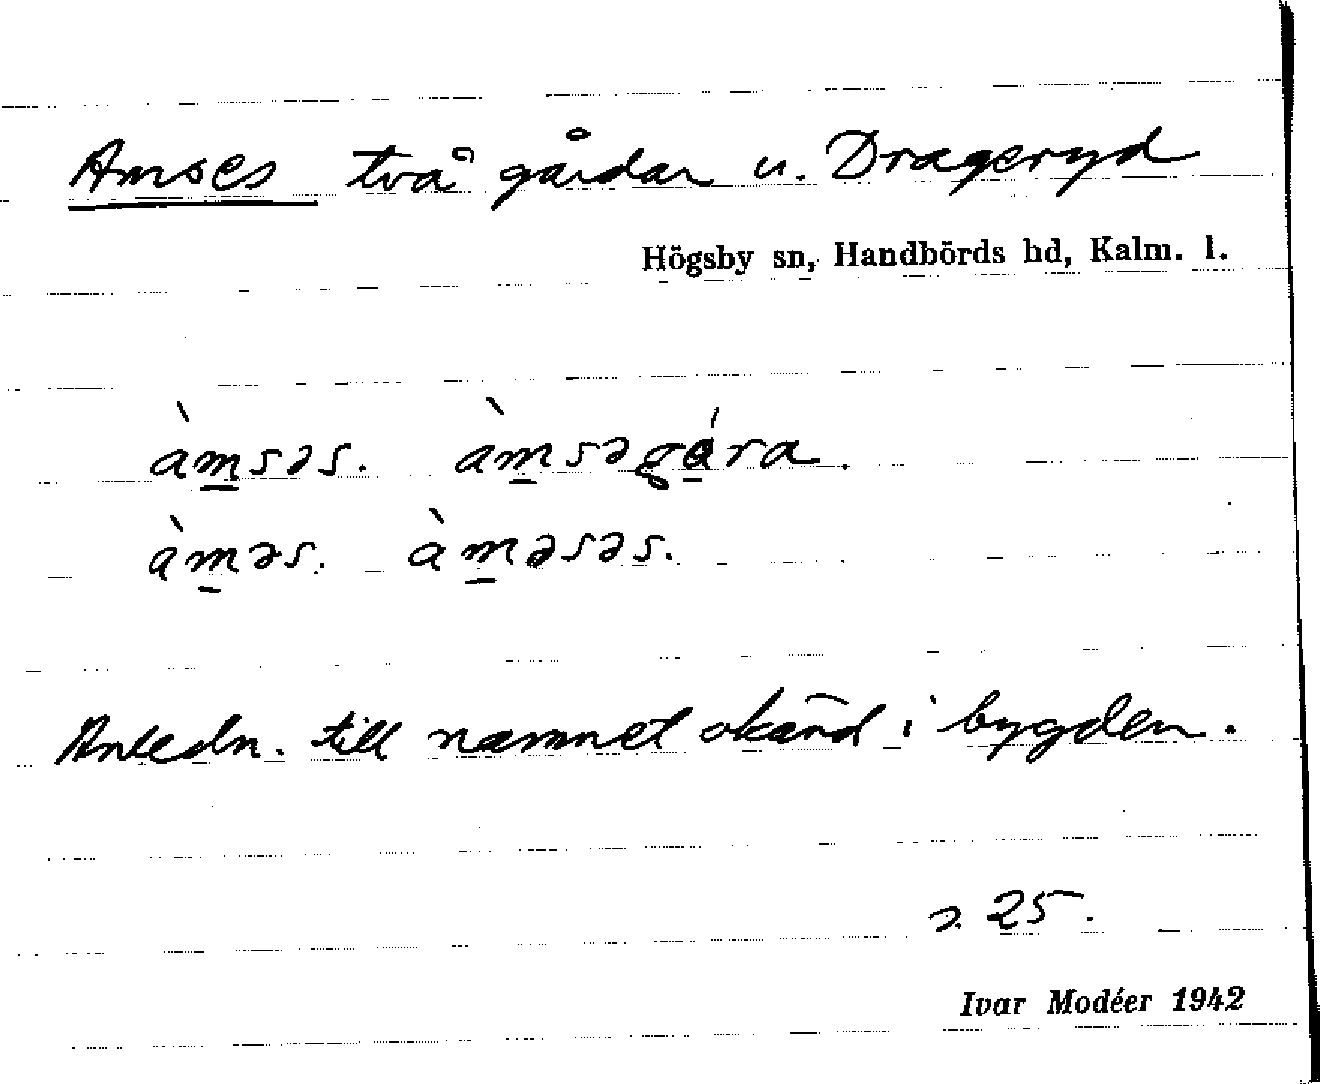 Amses två gårdar u. Drageryd
Högsby sn, Handbörds hd, Kalm. l.
àmsəs. àmsəgára.
àməs. àməsəs.
Anledn. till namnet okänd i bygden.
25.
Ivar Modéer 1942